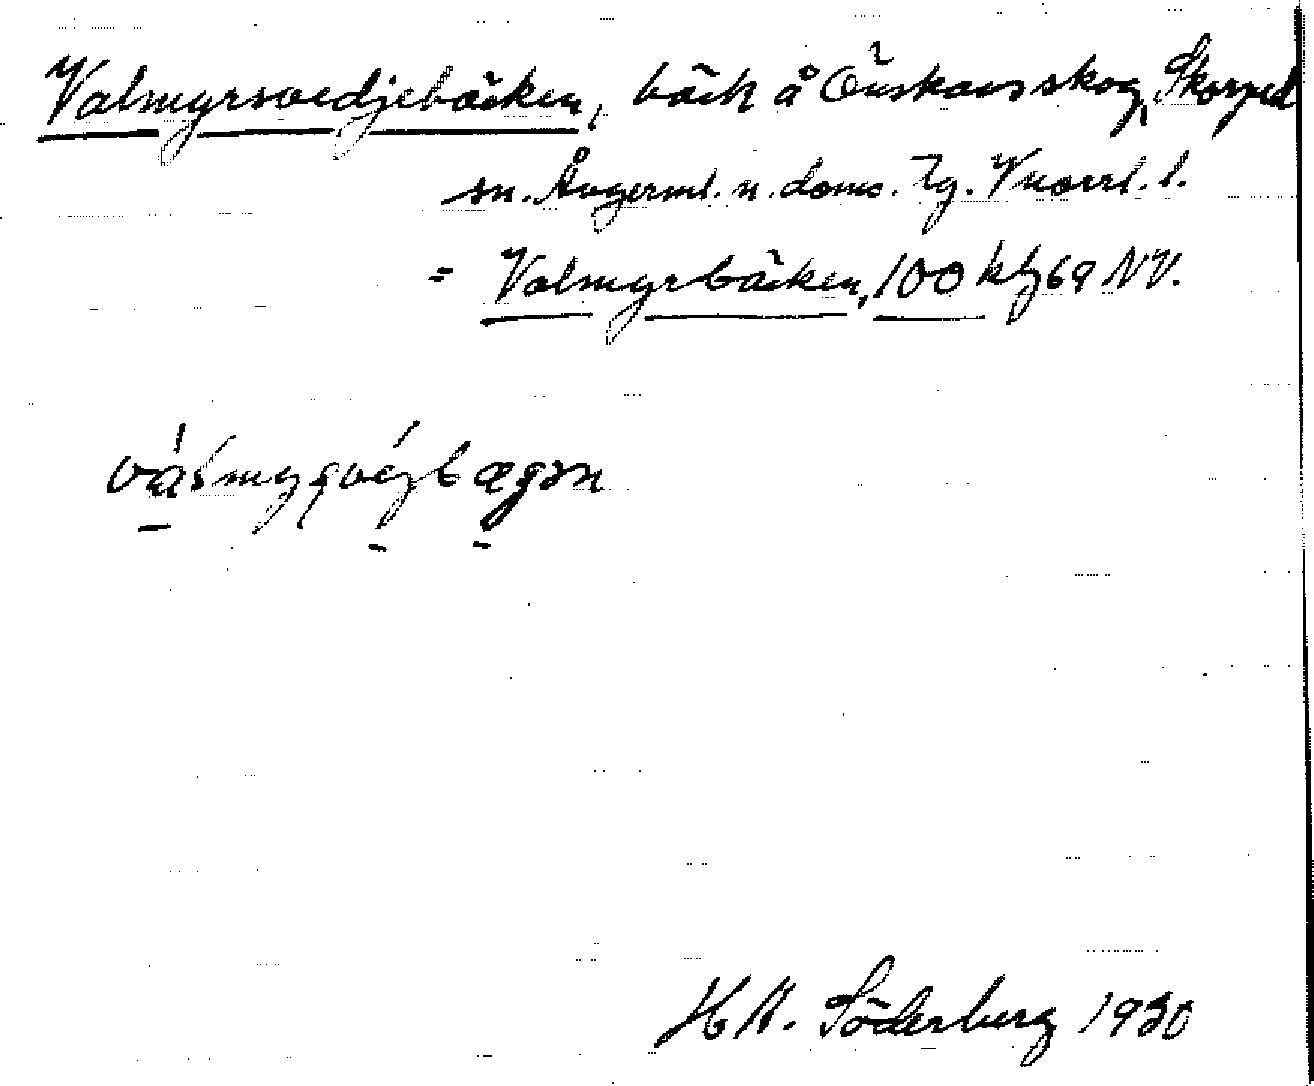 Valmyrsvedjebäcken, bäck å Önskans skog, Skorped
sn. Ångerml. n. doms. Tg. Vnorrl. l.
= Valmyrbäcken, 100 kbl 69 NV.
H A. Söderberg 1930